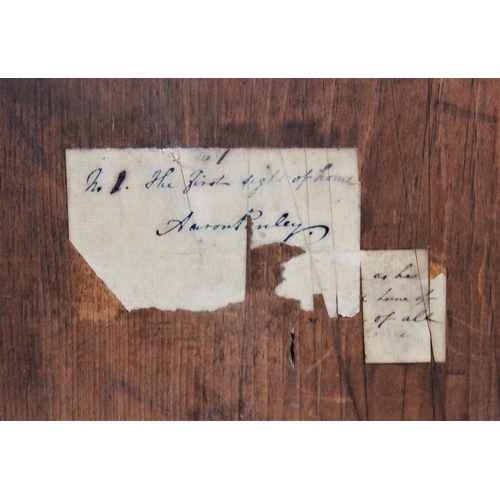 No 1. The first sight of home
Aaron Penley.
as he
home of
of all